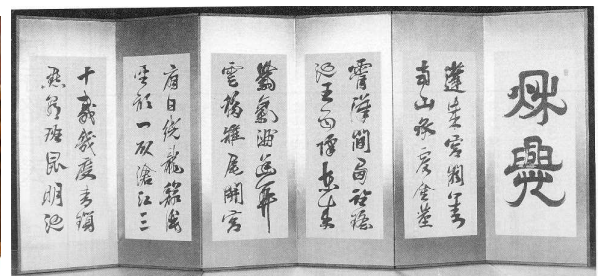 秋興
蓬莱宮闕對
南山承露金莖
霄漢間西望瑤
池王母降東来
紫氣滿函關
雲移雉尾開宮
扇日繞龍鱗識
聖顔一臥滄江三
十歳幾度青瑣
點朝班昆明池